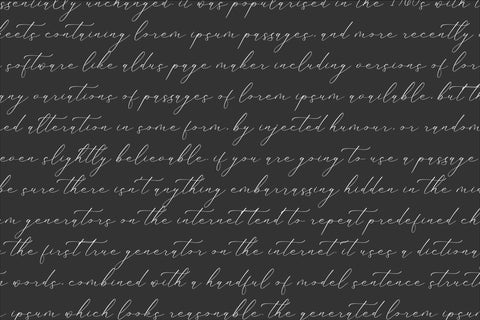 essentially unchanged. it was popularised in the 1960s with t
eets containing lorem ipsum passages, and more recently
software like aldus page maker including versions of lor
any variations of passages of lorem ipsum available, but th
ed alteration in some form, by injected humour, or random
even slightly believable. if you are going to use a passage
be sure there isn't anything embarrassing hidden in the mid
em generators on the internet tend to repeat predefined ch
the first true generator on the internet. it uses a dictiona
n words, combined with a handful of model sentence struct
ipsum which looks reasonable. the generated lorem ipsum